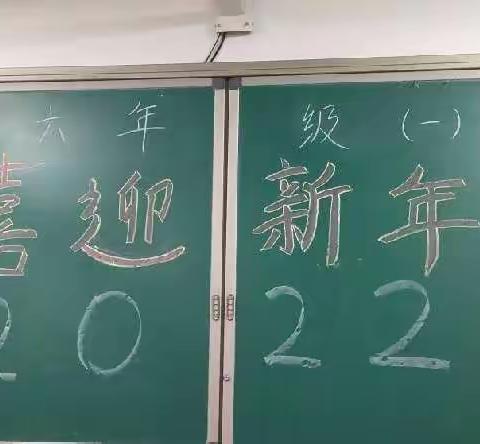 六年级(一)
喜迎新年
2022